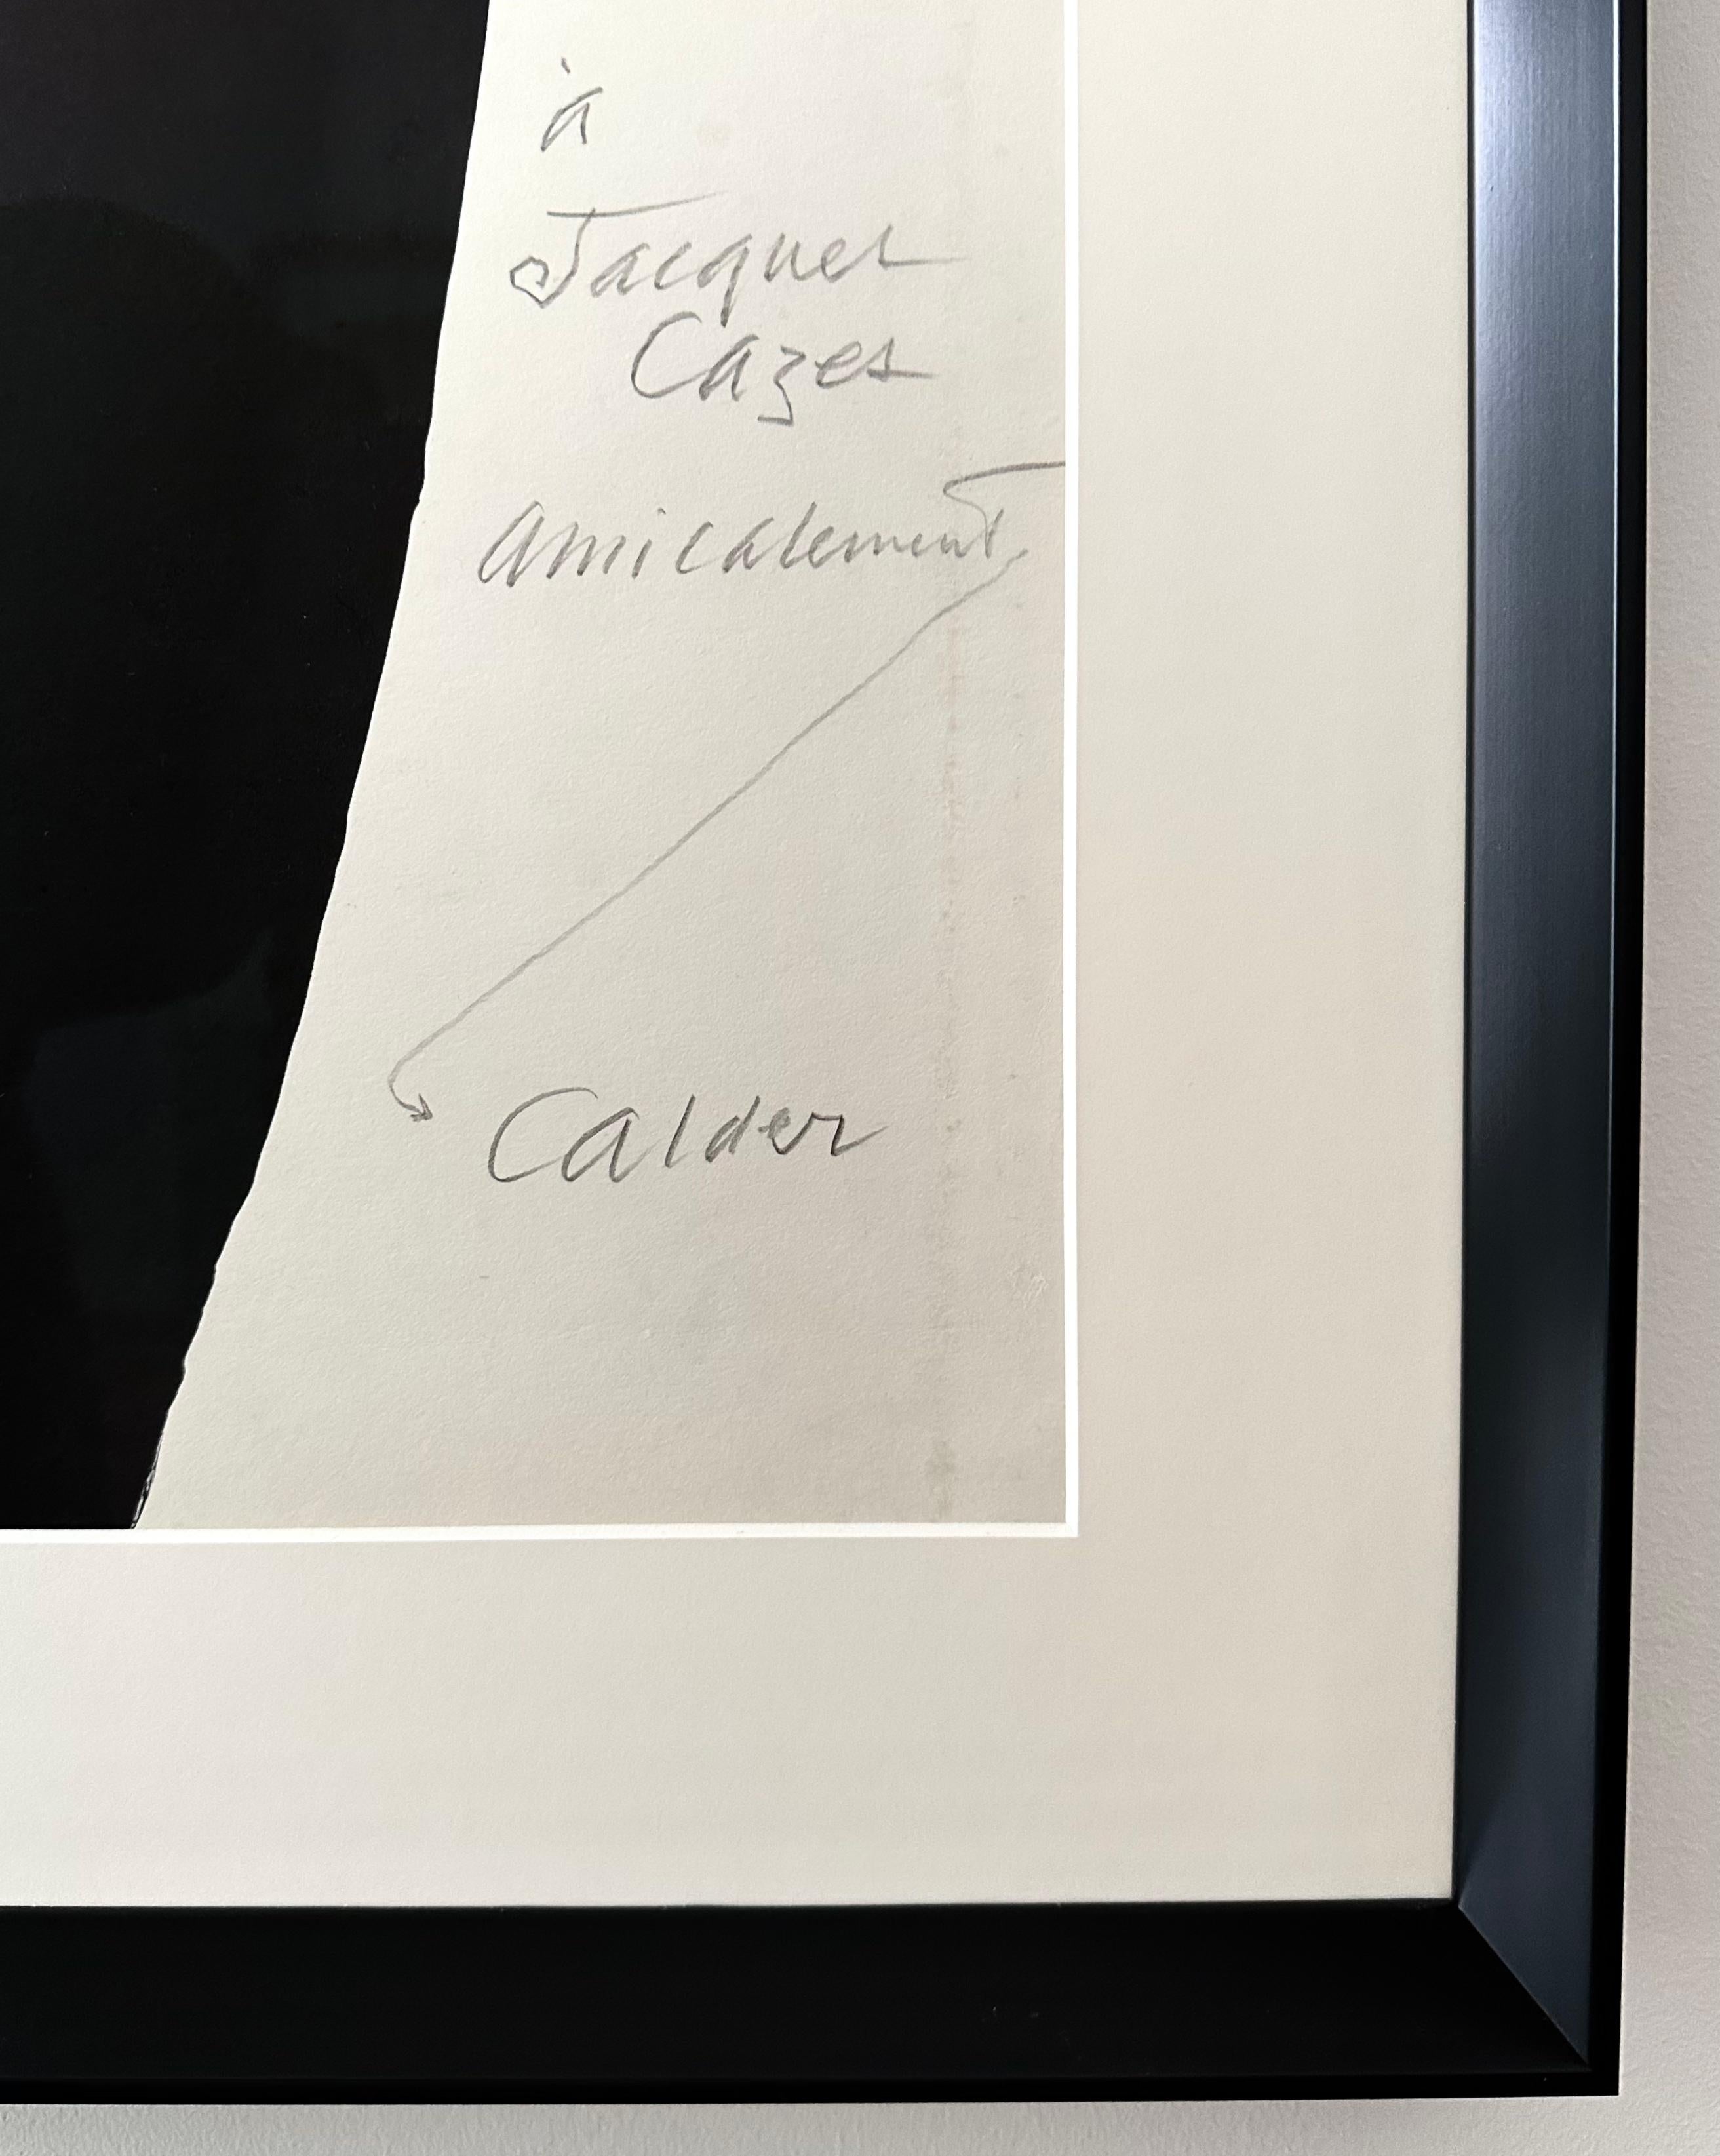 à
Jacques
Cazes
amicalement
Calder